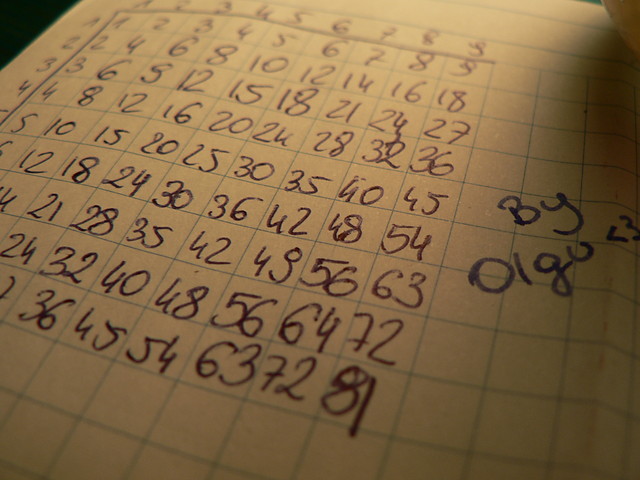 1 2 3 4 5 6 7 8 9
1 1 2 3 4 5 6 7 8 9
2 2 4 6 8 10 12 14 16 18
3 3 6 9 12 15 18 21 24 27
4 4 8 12 16 20 24 28 32 36
5 10 15 20 25 30 35 40 45
12 18 24 30 36 42 48 54
21 28 35 42 49 56 63
24 32 40 48 56 64 72
36 45 54 63 72 81
By
Olga <3